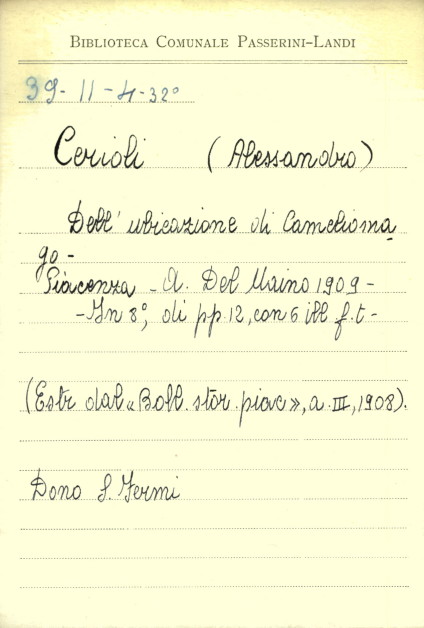 BIBLIOTECA COMUNALE PASSERINI-LANDI
39-11-4-32°
Cerioli (Alessandro)
Dell' ubicazione di Camelioma
go -
Piacenza - A. Del Maino 1909 -
- In 8°, di pp. 12, con 6 ill f. t -
(Estr dal «Boll. stor. piac», a. III, 1908).
Dono S. Fermi